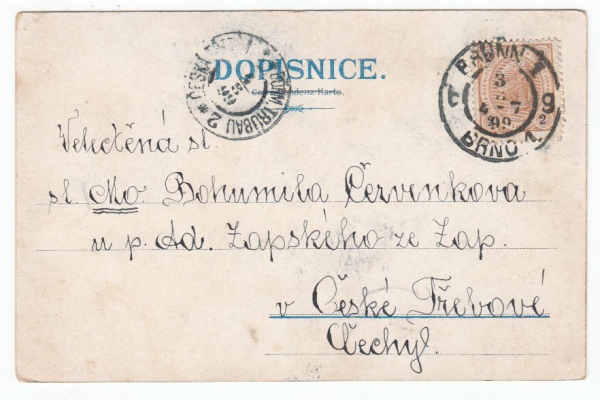 DOPISNICE.
Correspondenz-Karte.
ČESKÁ * BÖHM. TRÜBAU 2 *
99
BRÜNN 1
3
4 7
99
g 2
BRNO 1.
Velectěná sl.
sl. Mo Bohumila Červenkova
u p. Ad. Zapského ze Zap.
v České Třebové
Čechy.